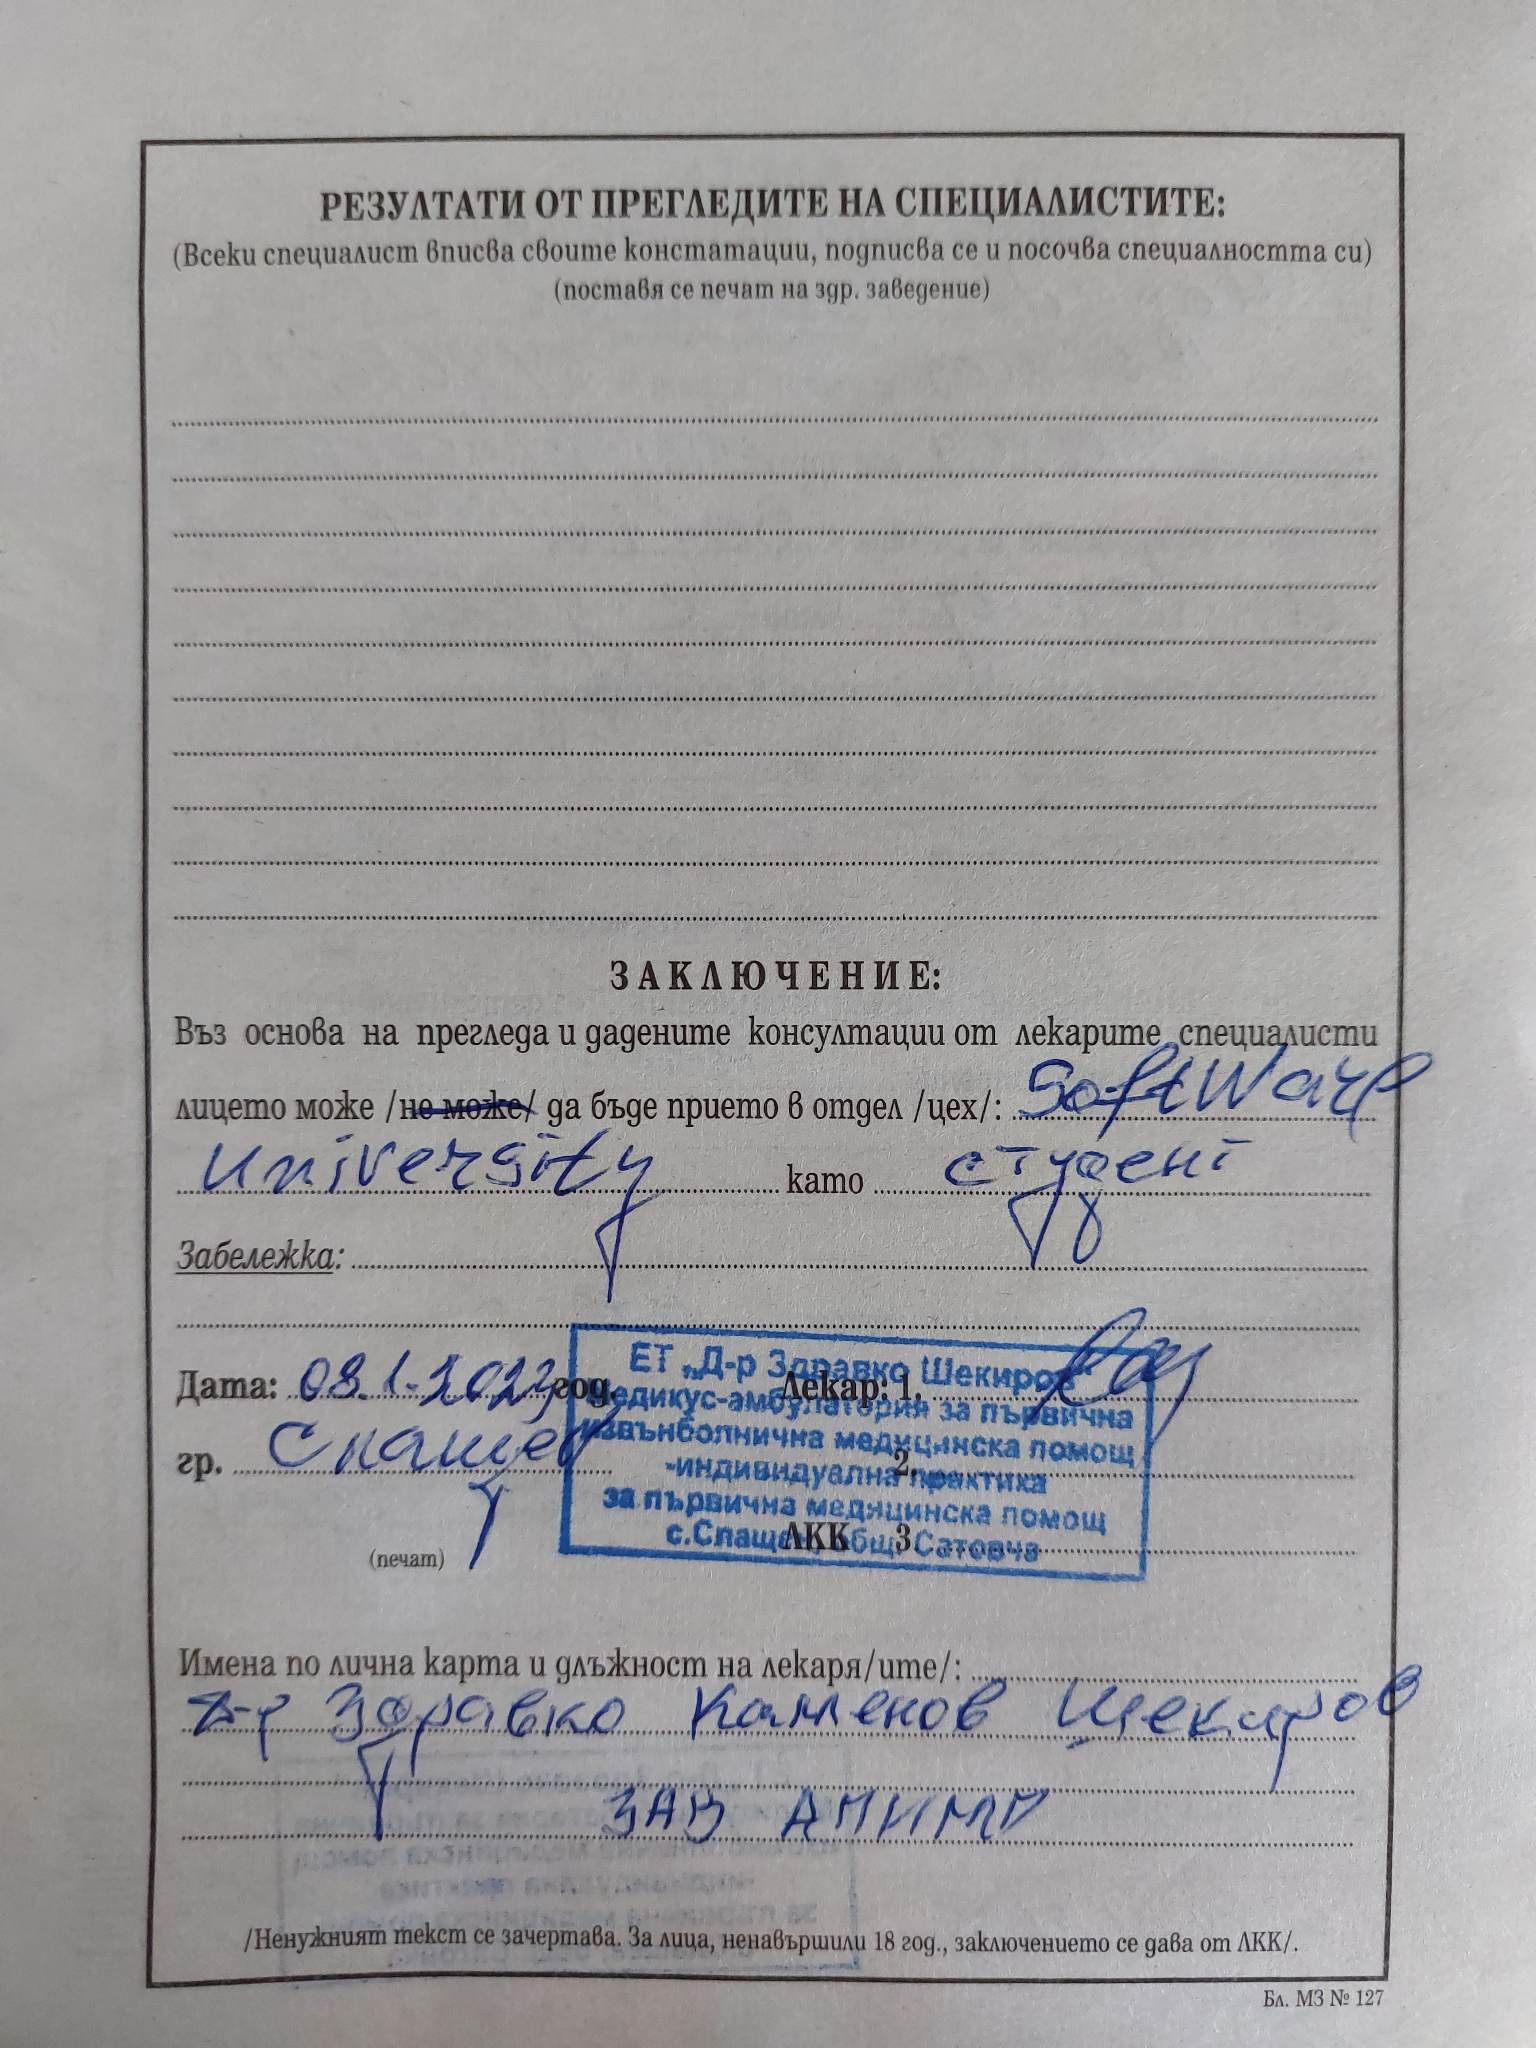 РЕЗУЛТАТИ ОТ ПРЕГЛЕДИТЕ НА СПЕЦИАЛИСТИТЕ:
(Всеки специалист вписва своите констатации, подписва се и посочва специалността си)
(поставя се печат на здр. заведение)
ЗАКЛЮЧЕНИЕ:
Въз основа на прегледа и дадените консултации от лекарите специалисти
лицето може /не може/ да бъде прието в отдел /цех/: Software
University като студент
Забележка:
Дата: год. Лекар: 1.
гр. Слащен 2.
(печат) ЛКК 3.
ЕТ „Д-р Здравко Шекиров"
Медикус-амбулатория за първична
извънболнична медицинска помощ
-индивидуална практика
за първична медицинска помощ
с.Слащен, общ. Сатовча
Имена по лична карта и длъжност на лекаря/ите/:
Д-р Здравко Каменов Шекиров
ЗАВ АПИМП
/Ненужният текст се зачертава. За лица, ненавършили 18 год., заключението се дава от ЛКК/.
Бл. МЗ № 127